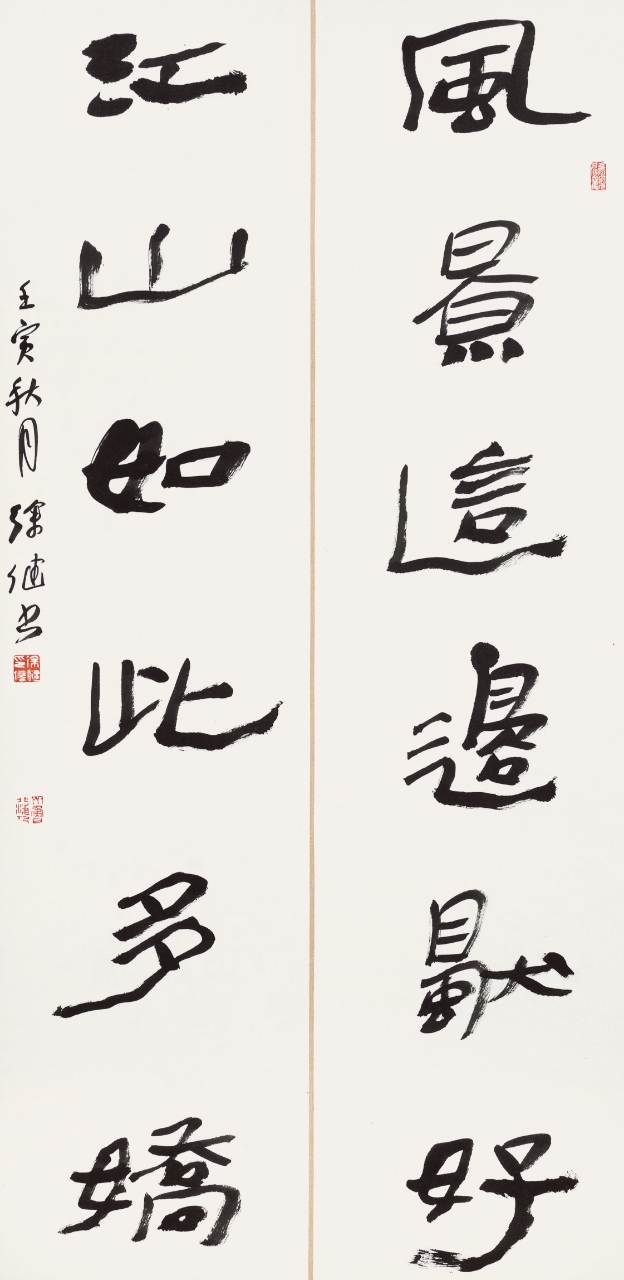 風景這邊獨好
江山如此多嬌
壬寅秋月徐健书